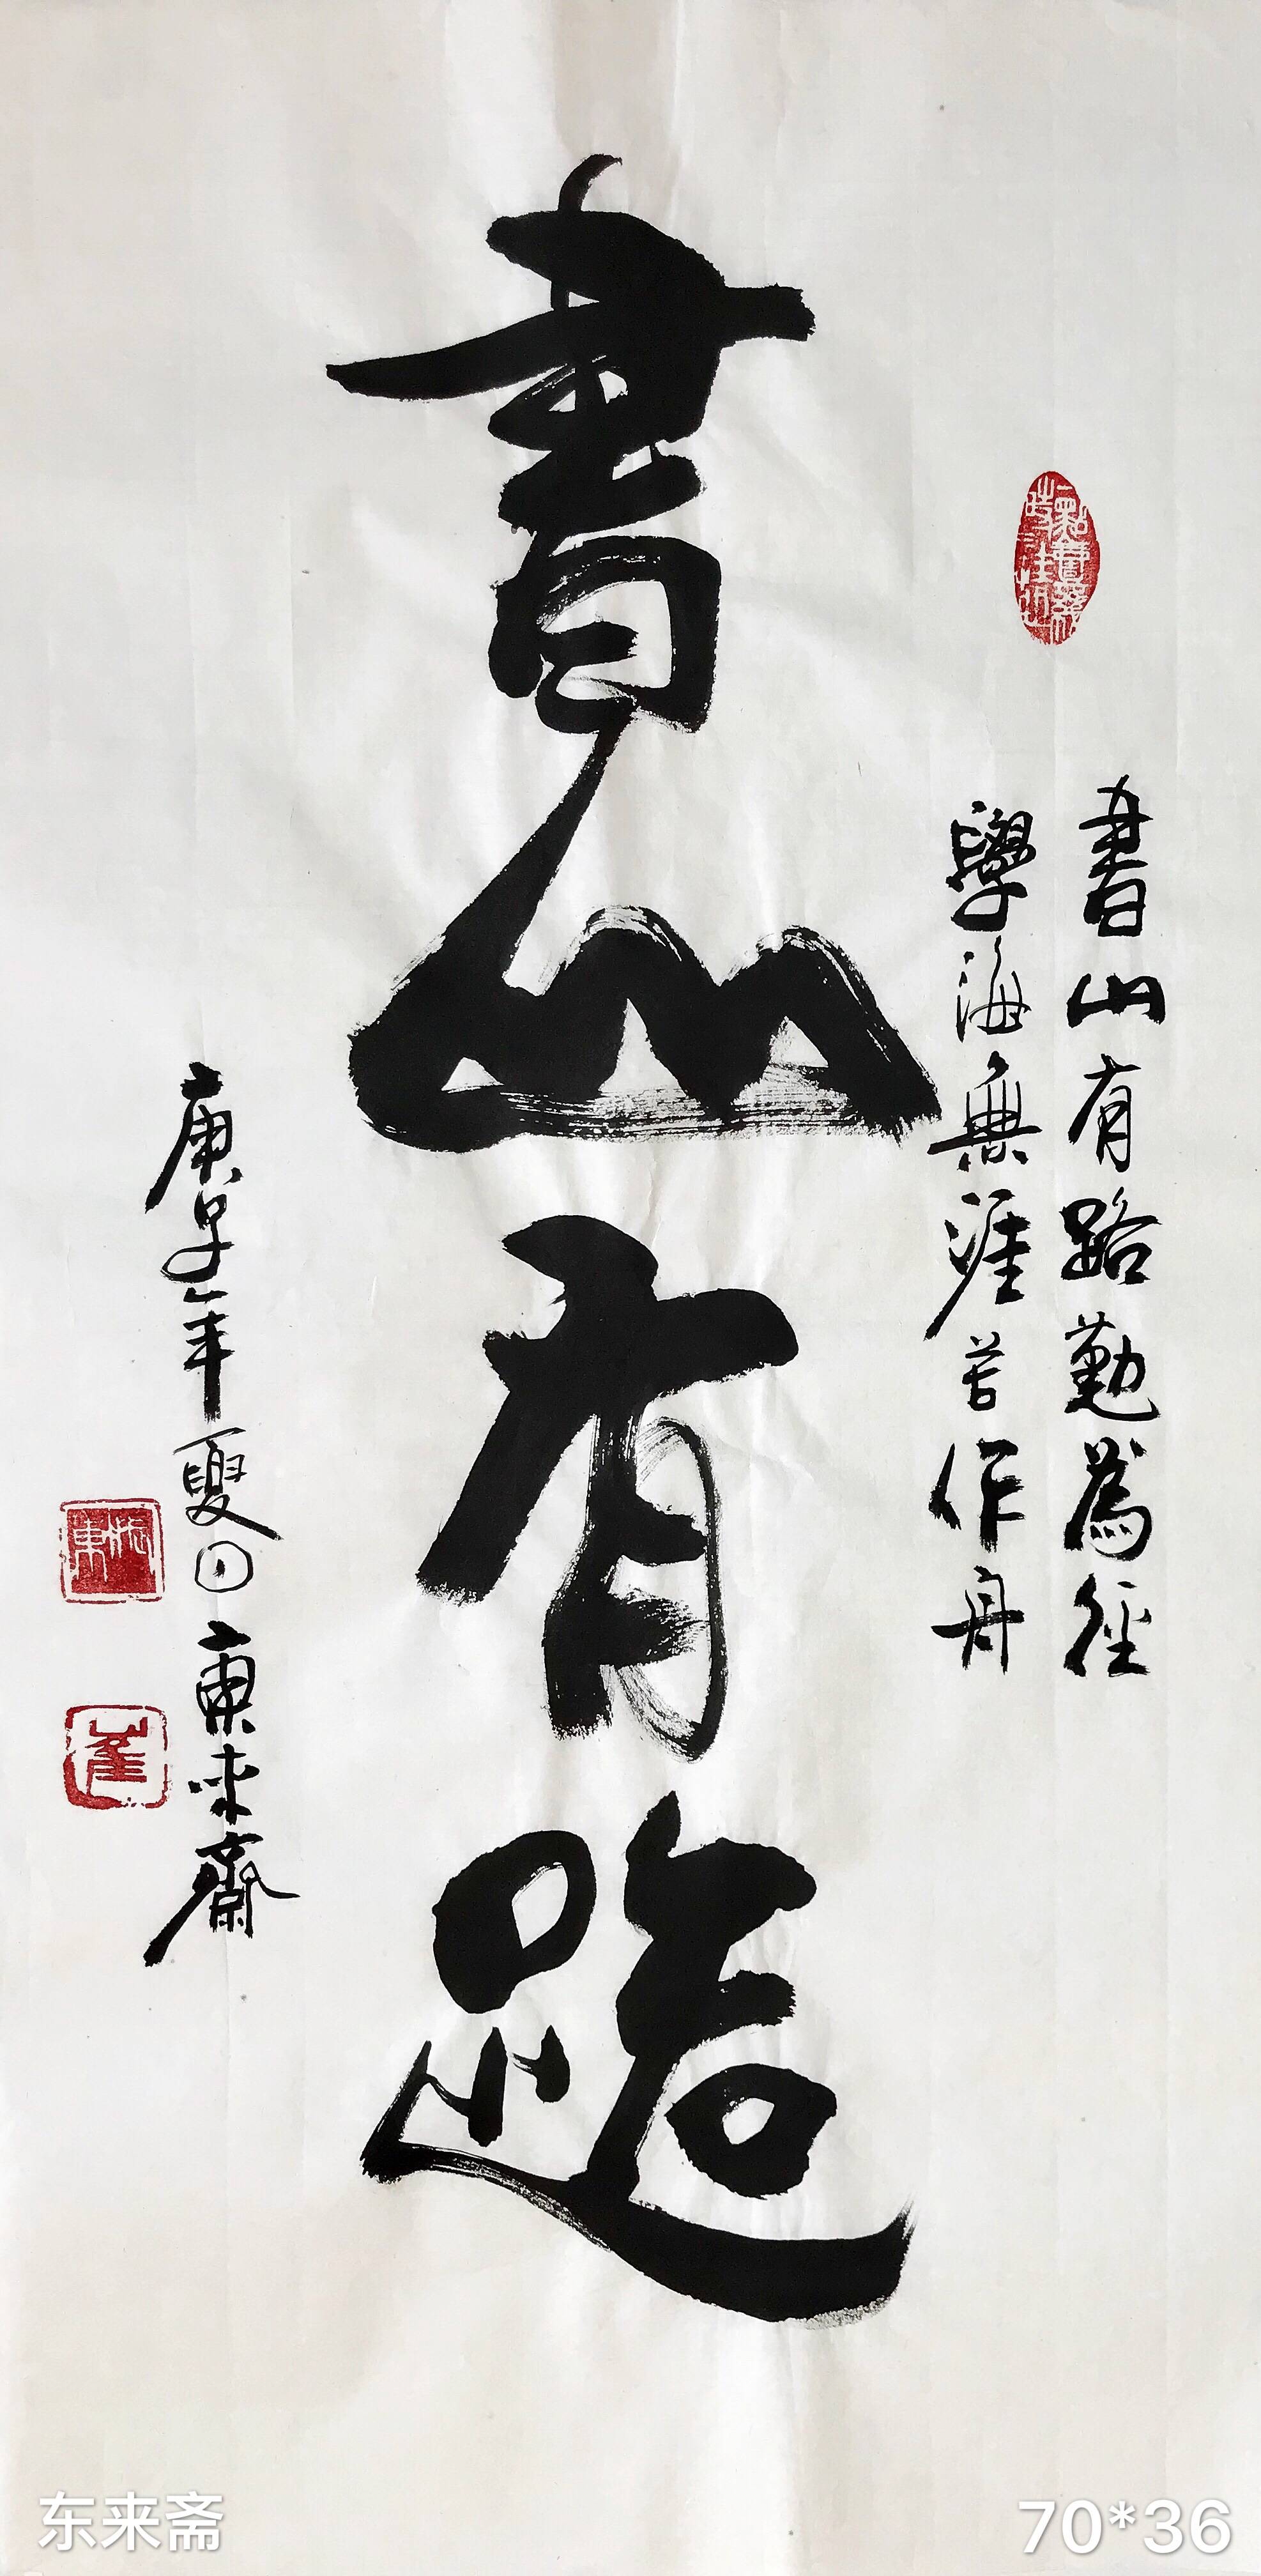 書山有路
書山有路勤為徑
學海無涯苦作舟
庚子年夏日東來齋
东来斋
70*36